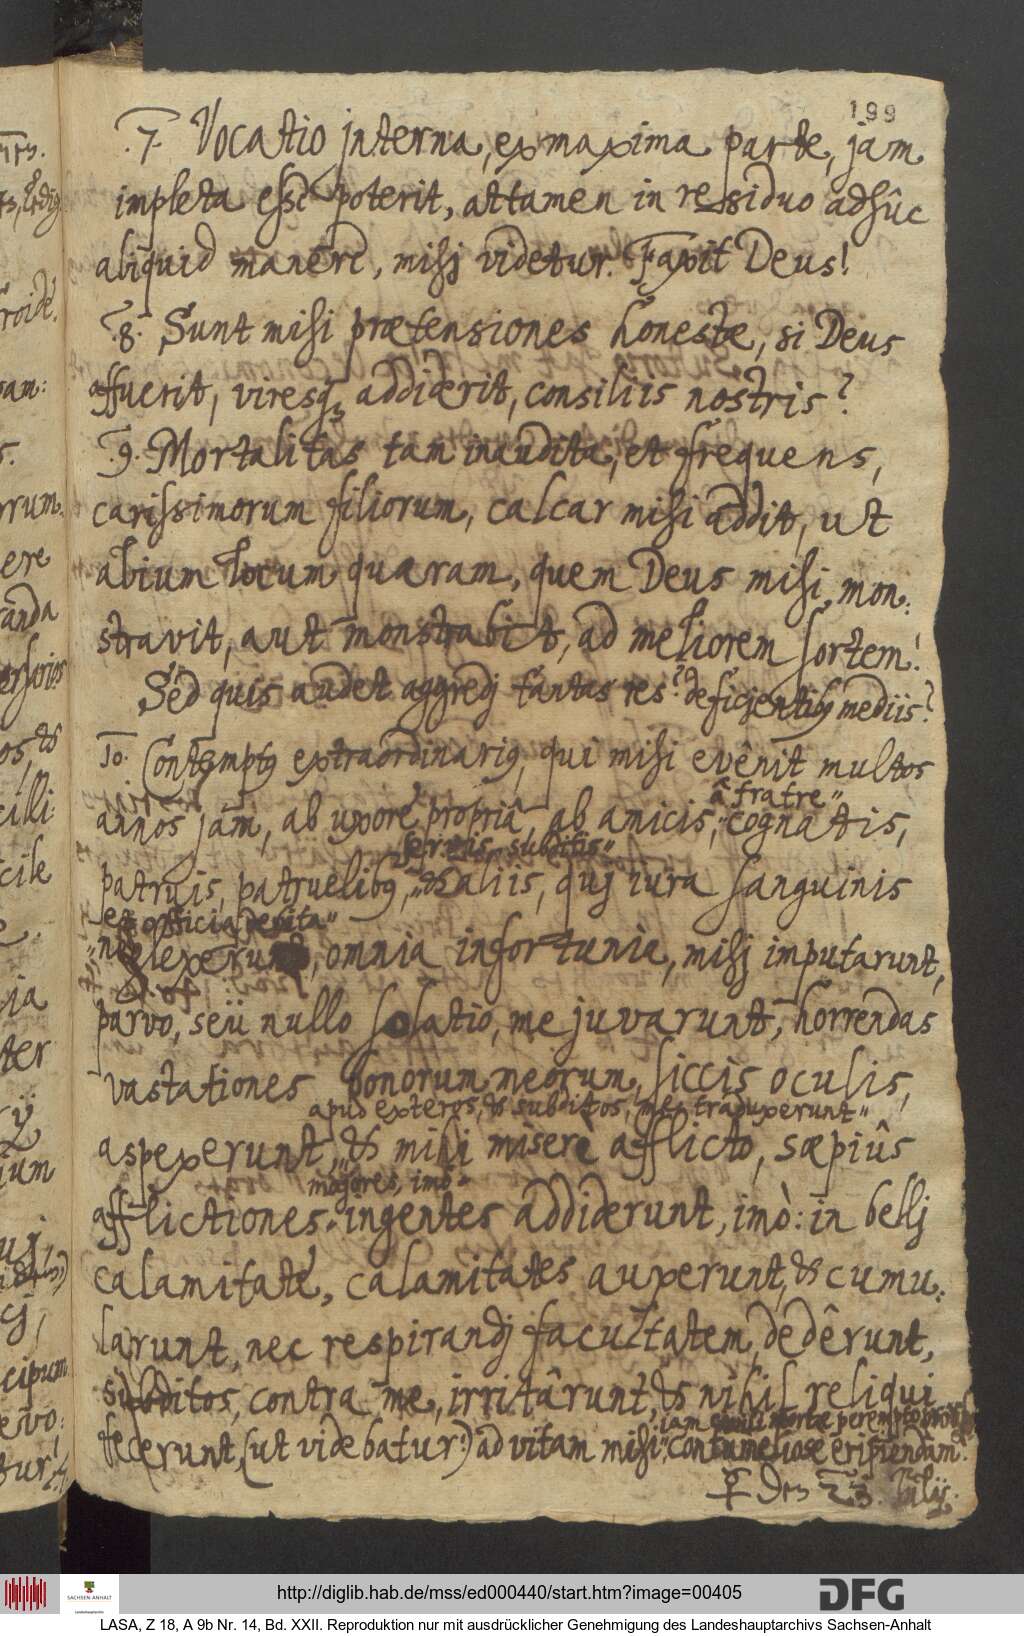 199
7. Vocatio interna, ex maxima parte, jam
impleta esse poterit, attamen in residuo adhûc
aliquid manere, mihj videtur. Faxit Deus!
8. Sunt mihi prætensiones honestæ, si Deus
affuerit, viresq3 addiderit, consiliis nostris?
9. Mortalitas tam inaudita, et frequens,
carissimorum filiorum, calcar mihi addit, ut
alium locum quæram, quem Deus mihi mon:
stravit, aut monstrabit, ad meliorem sortem!
Sed quis audet aggredj tantas res? deficientib9 mediis?
10. Contempt9 extraordinari9, qui mihi evênit multos
â fratre"
annos jam, ab uxore propriâ, ab amicis," cognatis,
servis, subditis"
patruis, patruelib9," & aliis, quj iura sanguinis
et officia debita"
"neglexerunt, omnia infortunia, mihj imputarunt,
parvo, seü nullo solatio, me juvarunt, horrendas
vastationes bonorum meorum, siccis oculis,
apud exteros, & subditos, me, traduxerunt"
aspexerunt," & mihi miserè afflicto, sæpiûs
majores, imò"
afflictiones" ingentes addiderunt, imò: in bellj
calamitate, calamitates auxerunt, & cumu:
larunt, nec respirandj facultatem dedêrunt,
subditos, contra me, irritârunt, & nihil reliqui
iam
fecerunt, (ut videbatur:) ad vitam mihi," contumeliose eripiendam.
den 23. Julij.
http://diglib.hab.de/mss/ed000440/start.htm?image=00405
SACHSEN-ANHALT
Landeshauptarchiv
DFG
LASA, Z 18, A 9b Nr. 14, Bd. XXII. Reproduktion nur mit ausdrücklicher Genehmigung des Landeshauptarchivs Sachsen-Anhalt